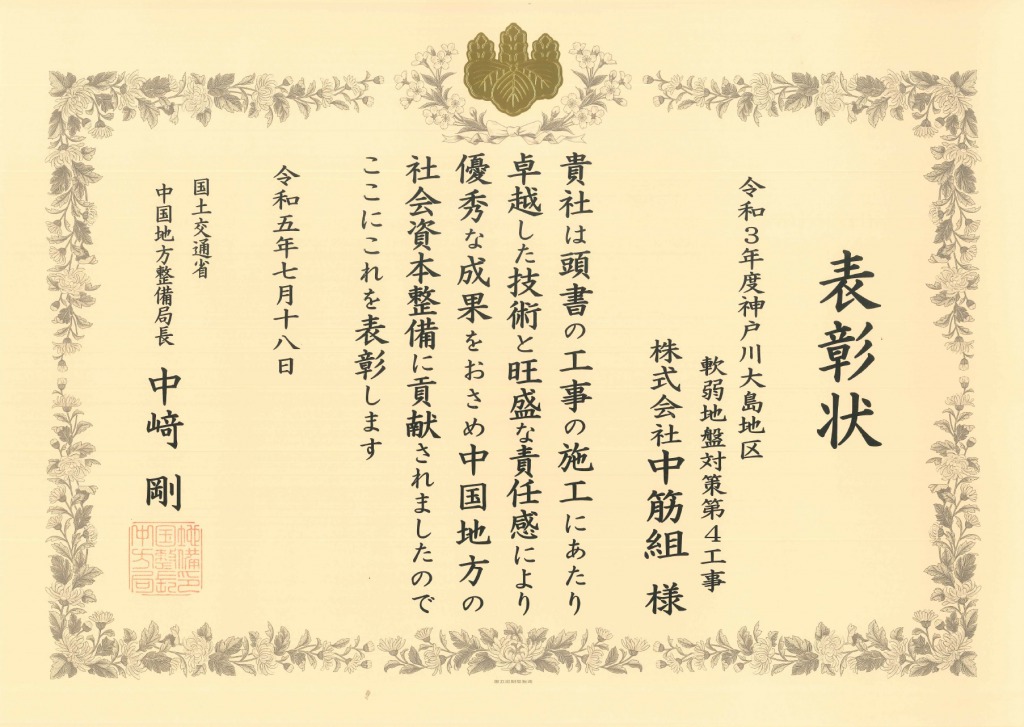 表彰状
令和3年度神戸川大島地区
軟弱地盤対策第4工事
株式会社中筋組 様
貴社は頭書の工事の施工にあたり
卓越した技術と旺盛な責任感により
優秀な成果をおさめ中国地方の
社会資本整備に貢献されましたので
ここにこれを表彰します
令和五年七月十八日
国土交通省
中国地方整備局長 中﨑 剛